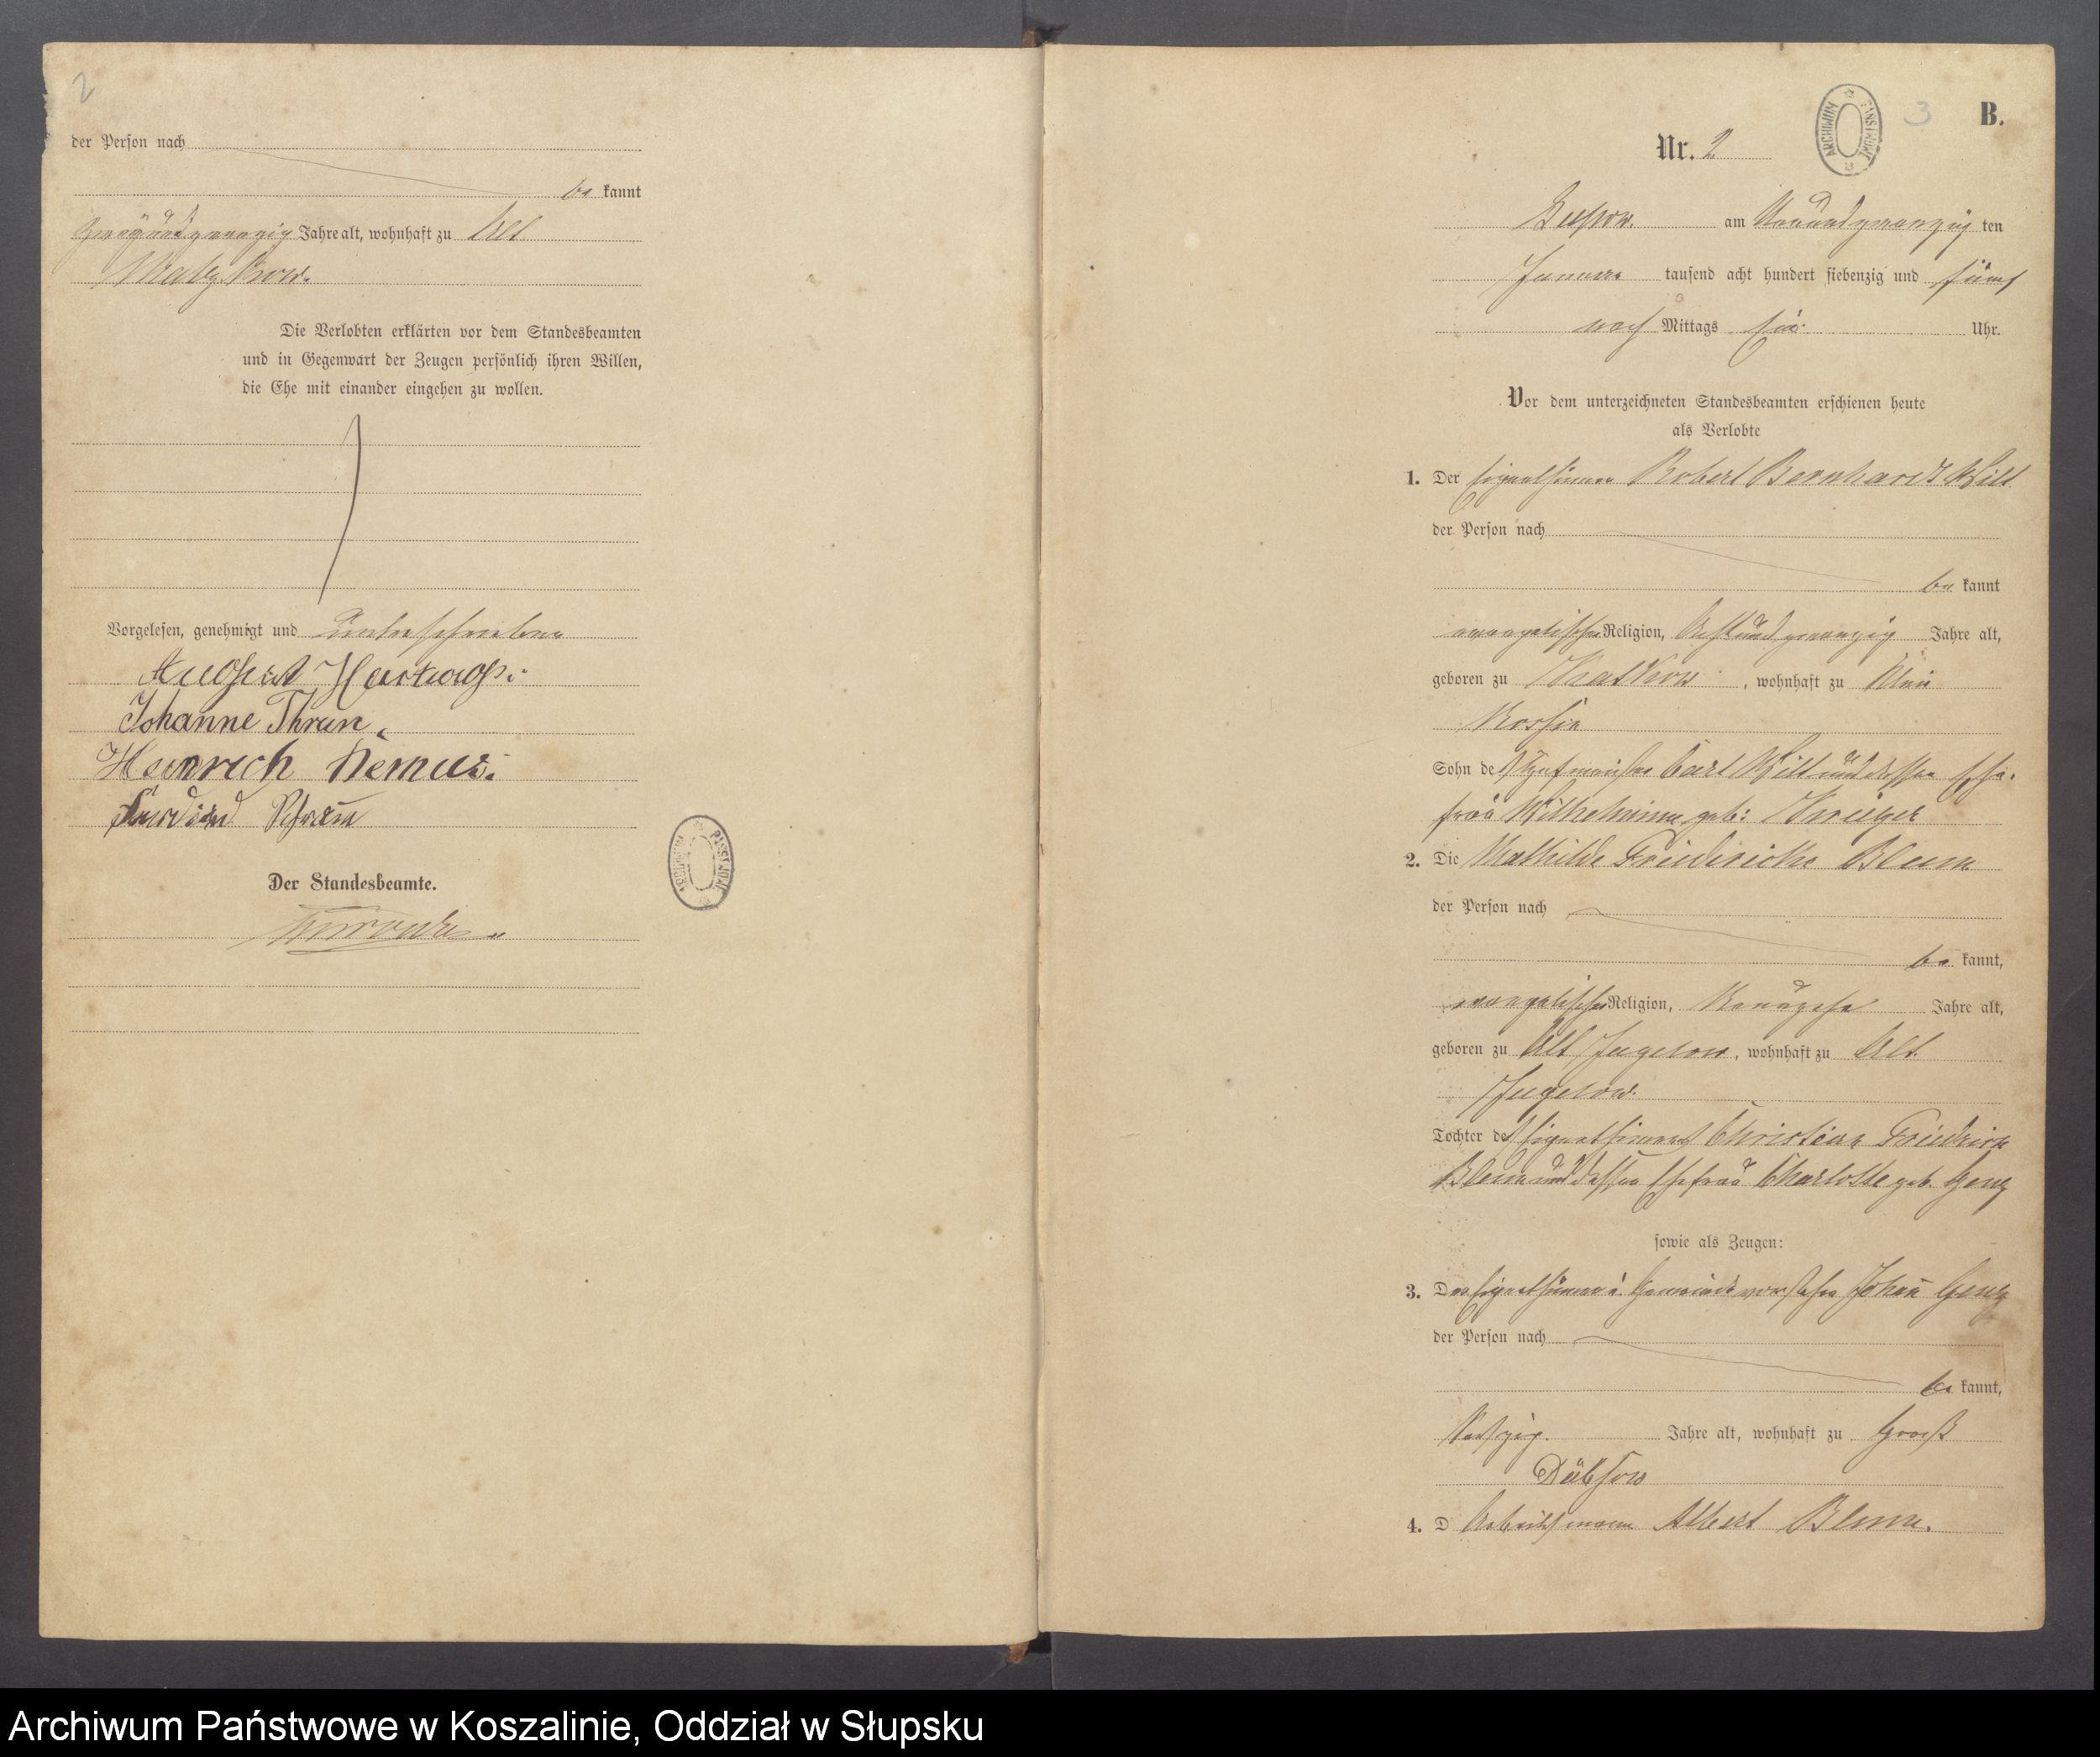 2
der Person nach
be kannt
zweiundzwanzig Jahre alt, wohnhaft zu Alt
Die Verlobten erklärten vor dem Standesbeamten
und in Gegenwart der Zeugen persönlich ihren Willen,
die Ehe mit einander eingehen zu wollen.
Vorgelesen, genehmigt und unterschrieben
August
Johanne Thrun.
Heinrich Remus.
Der Standesbeamte.
3
B.
Nr. 2
ARCHIWUM PAŃSTWOWE
am Neunundzwanzig ten
Januar tausend acht hundert siebenzig und fünf
nach Mittags Uhr.
Vor dem unterzeichneten Standesbeamten erschienen heute
als Verlobte
1. Der Eigenthümer Robert Bernhardt Witt
der Person nach
be kannt
evangelischer Religion, Achtundzwanzig Jahre alt,
geboren zu , wohnhaft zu Klein
Nossin
Sohn des Hofmeister Carl Witt und dessen Ehe-
frau Wilhelmine geb: Krüger
2. Die Mathilde Friedericke Blum
der Person nach
be kannt,
evangelischer Religion, Neunzehn Jahre alt,
geboren zu Alt Jugelow, wohnhaft zu Alt
Jugelow.
Tochter des Eigenthümers Christian Friedrich
Blum und dessen Ehefrau Charlotte geb. Genz
sowie als Zeugen:
3. Der Eigenthümer u. Gemeindevorsteher Johann Genz
der Person nach
be kannt,
Jahre alt, wohnhaft zu Groß
Dübsow
4. D Arbeitsmann Albert Blum.
Archiwum Państwowe w Koszalinie, Oddział w Słupsku